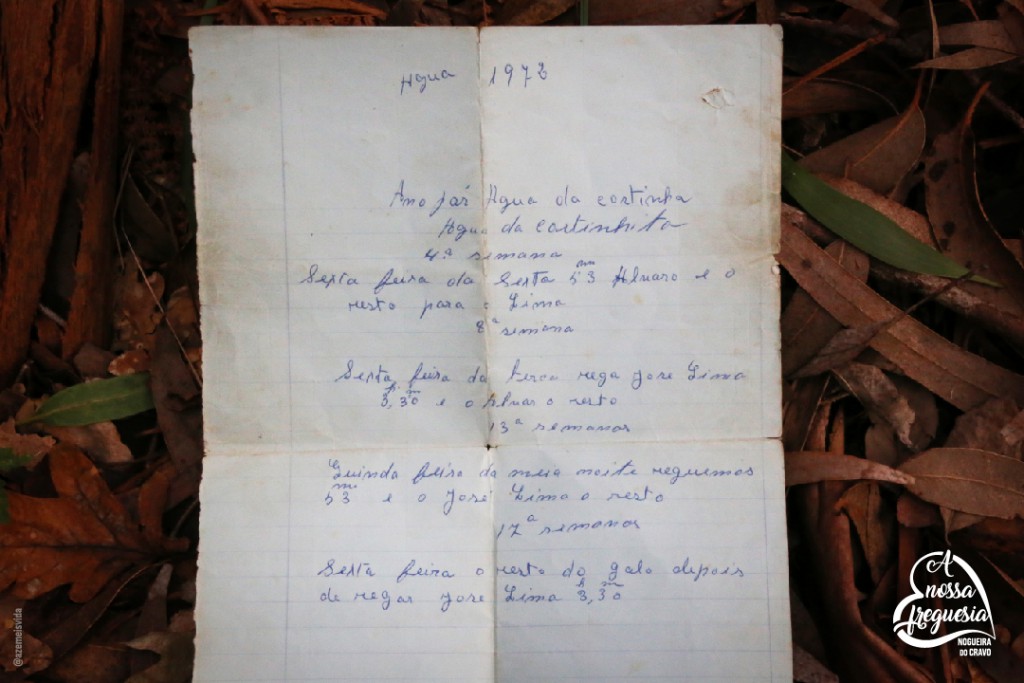 Agua 1972
Ano par Agua da cortinha
Agua da cortinhita
4ª semana
Sexta feira da Sexta 53 m Alvaro e o
resto para o Lima
8ª semana
Sexta feira da terca rega José Lima
3h,30m e o Alvaro o resto
13ª semanas
Quinda feira da meia noite reguemos
53 m e o José Lima o resto
17ª semanas
Sesta feira o resto do galo depois
de regar José Lima 3h,30m
@azemeisvida
A
nossa
freguesia
NOGUEIRA
DO CRAVO